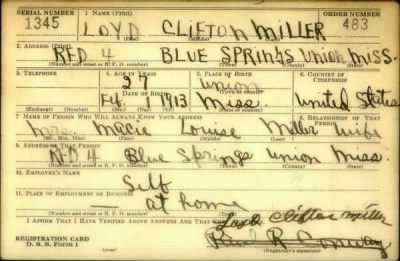 SERIAL NUMBER 1. NAME (Print) ORDER NUMBER
1345 LOYD CLIFTON MILLER 483
2. ADDRESS (Print)
RFD 4 BLUE SPRINGS UNION MISS.
(Number and street or R. F. D. number) (Town) (County) (State)
3. TELEPHONE 4. AGE IN YEARS 5. PLACE OF BIRTH 6. COUNTRY OF CITIZENSHIP
27 Union
DATE OF BIRTH
1913 Miss. United States
(Exchange) (Number) (Mo.) (Day) (Yr.) (State or country)
7. NAME OF PERSON WHO WILL ALWAYS KNOW YOUR ADDRESS 8. RELATIONSHIP OF THAT PERSON
Mrs. Macie Louise Miller wife
(Mr., Mrs., Miss) (First) (Middle) (Last)
9. ADDRESS OF THAT PERSON
RFD 4 Blue Springs Union Miss.
(Number and street or R. F. D. number) (Town) (County) (State)
10. EMPLOYER'S NAME
Self
11. PLACE OF EMPLOYMENT OR BUSINESS
— at home
(Number and street or R. F. D. number) (Town) (County) (State)
I AFFIRM THAT I HAVE VERIFIED ABOVE ANSWERS AND THAT
Loyd Clifton Miller
REGISTRATION CARD
D. S. S. Form 1
Paul R.